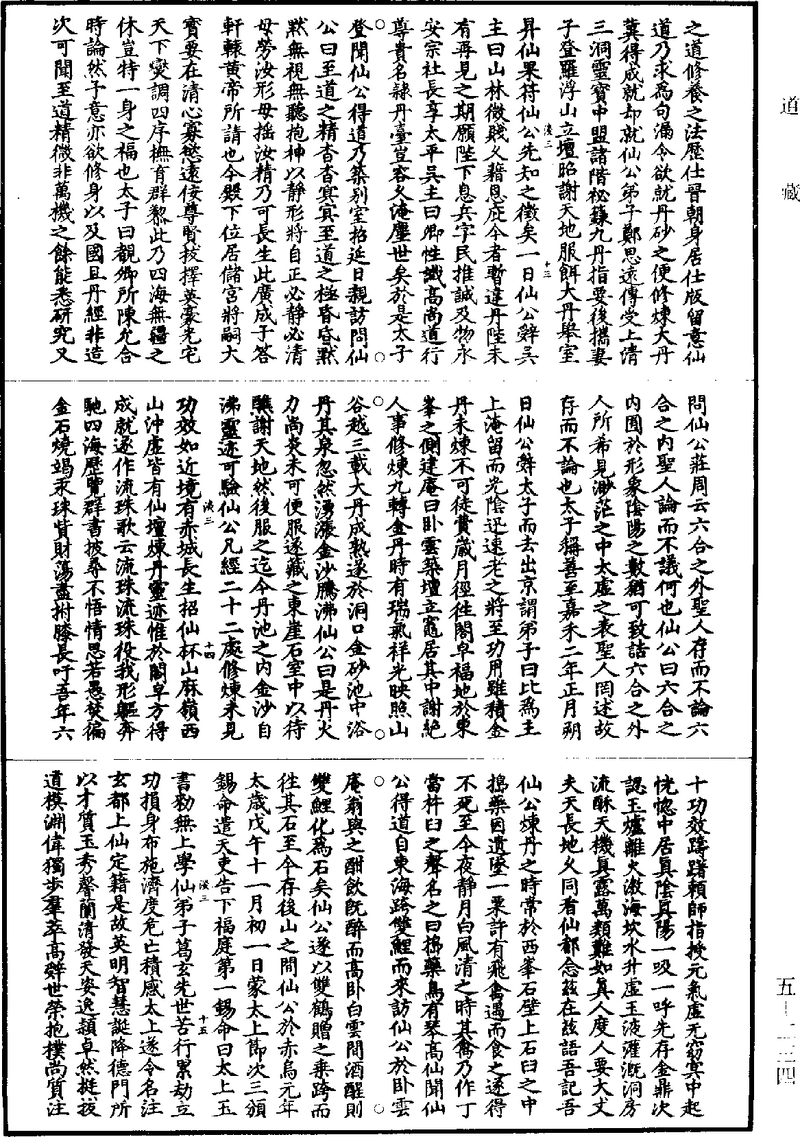 道藏
之道修養之法歷仕晉朝身居仕版留意仙
道乃求為句漏令欲就丹砂之便修煉大丹
冀得成就却就仙公弟子鄭思遠傳受上清
三洞靈寶中盟諸階祕籙九丹指要後攜妻
子登羅浮山立壇昭謝天地服餌大丹舉室
昇仙果符仙公先知之徵矣一日仙公辭吳
主曰山林微賤乆藉恩庇今者暫違丹陛未
有再見之期願陛下息兵字民推誠及物永
安宗社長享太平吳主曰卿性識高尚道行
尊貴名隷丹臺豈容乆淹塵世矣於是太子
登聞仙公得道乃築别室招延日親訪問仙
公曰至道之精杳杳冥冥至道之極昏昏黙
黙無視無聽抱神以靜形將自正必静必清
毋勞汝形毋搖汝精乃可長生此廣成子答
軒轅黄帝所請也今殿下位居儲宮將嗣大
寳要在清心寡慾遠佞尊賢拔擇英豪光宅
天下爕調四序撫育群黎此乃四海無疆之
休豈特一身之福也太子曰觀卿所陳允合
時論然予意亦欲修身以及國且丹經非造
次可聞至道精微非萬機之餘能悉研究又
淡二
十三
問仙公莊周云六合之外聖人存而不論六
合之内聖人論而不議何也仙公曰六合之
内囿於形象陰陽之數猶可致詰六合之外
人所希見渺茫之中太虛之表聖人罔述故
存而不論也太子稱善至嘉禾二年正月朔
日仙公辭太子而去出京謂弟子曰比為主
上淹留而光陰迅速老之將至功用雖積金
丹未煉不可徒費歲月徑往閤皁福地於東
峯之側建庵曰卧雲築壇立竈居其中謝絶
人事修煉九轉金丹時有瑞氣祥光映照山
谷越三載大丹成熟遂於洞口金砂池中浴
丹其泉忽然湧漲金沙騰沸仙公曰是丹火
力尚炎未可便服遂藏之東崖石室中以待
醮謝天地然後服之迄今丹池之内金沙自
沸靈迹可驗仙公凡經二十二處修煉未見
功效如近境有赤城長生招仙杯山麻嶺西
山沖虛皆有仙壇煉丹靈迹惟於閤皁方得
成就遂作流珠歌云流珠流珠役我形軀奔
馳四海歷覽群書披尋不悟情思若愚焚徧
金石燒竭汞珠貲財蕩盡拊膝長吁吾年六
淡二
十四
十功效躊躇賴師指授元氣虛无窈冥中起
恍惚中居眞陰眞陽一吸一呼先存金鼎次
認玉爐離火激海坎水升虛玉液灌溉洞房
流酥天機眞露萬類難如眞人度人要大丈
夫天長地乆同看仙都念兹在兹語吾記吾
仙公煉丹之時常於西峯石壁上石臼之中
搗藥因遺墜一粟許有飛禽過而食之遂得
不死至今夜靜月白風清之時其禽乃作丁
當杵臼之聲名之曰搗藥鳥有琴高仙聞仙
公得道自東海跨雙鯉而來訪仙公於卧雲
庵翁與之酣飲旣醉而高卧白雲間酒醒則
雙鯉化為石矣仙公遂以雙鶴贈之乗跨而
往其石至今存後山之間仙公於赤烏元年
太歲戊午十一月初一日蒙太上節次三頒
錫命遣天吏告下福庭第一錫命曰太上玉
書勑無上學仙弟子葛玄先世苦行累劫立
功損身布施濟度危亡積感太上遂令名注
玄都上仙定籍是故英明智慧誕降德門所
以才質玉秀馨蘭清發天姿逸頴卓然挺拔
道模淵偉獨步羣萃高辭世榮抱樸尚質注
淡二
十五
五－二三四